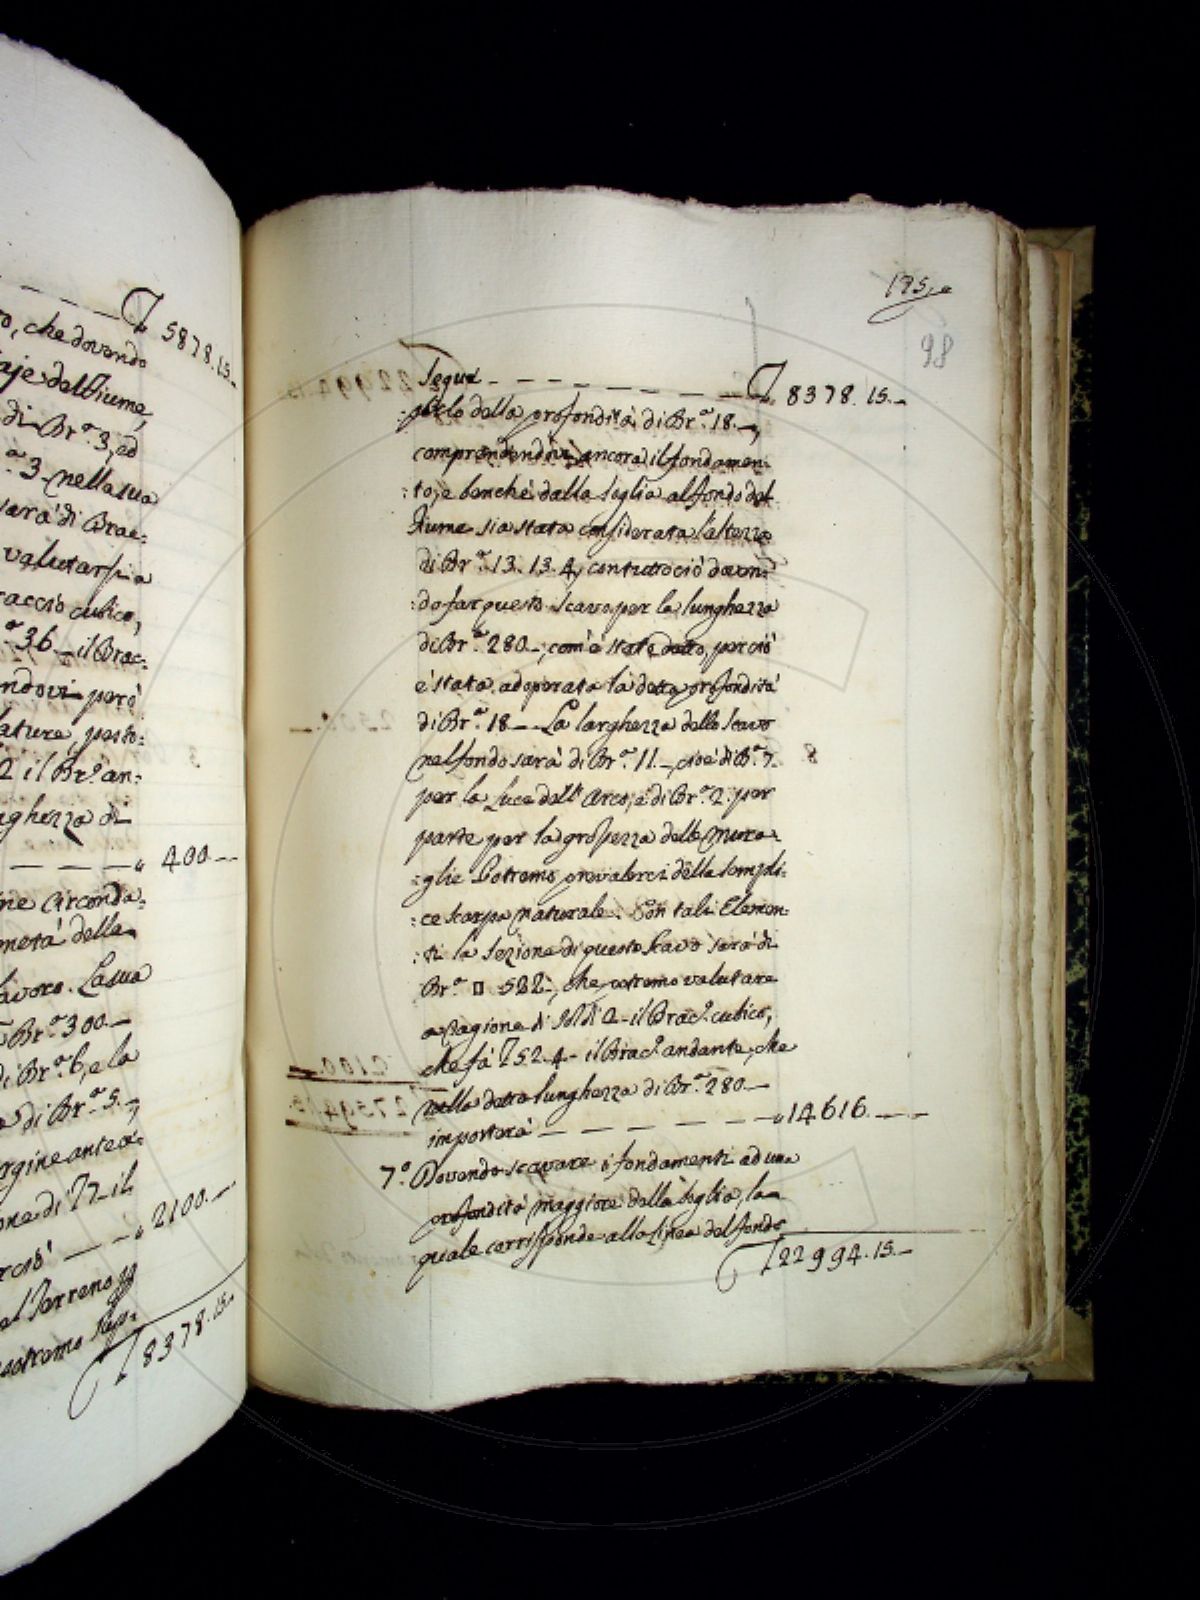 5878.15.-
ro, che dovendo
aje del Fiume,
di Br.ª 3, ed
.ª 3 nella sua
sarà di Brac=
valutarsi a
raccio cubico,
.ª 36 il Brac=
ndovi però
lature, posto=
2 il Br.º an=
nghezza di
400
ne circonda=
metà della
lavoro. La sua
Br.ª 300
di Br.ª 6, e la
a di Br.ª 5.
rgine antea=
one di 77 il
rciò 2100
al Terreno
potremo
8378.15.
195
98
Segue 8378.15.-
=pelo della profondità di Br.ª 18.-,
comprendendovi ancora il fondamen=
=to, e benchè dalla Soglia al fondo del
Fiume sia stata considerata l'altezza
di Br.ª 13.13.4, contuttociò doven=
=do far questo scavo per la lunghezza
di Br.ª 280-, com'è stato detto, perciò
è stata adoperata la detta profondità
di Br.ª 18- La larghezza dello scavo
nel fondo sarà di Br.ª 11-, cioè di B.ª 7.
per la Luce dell'Arco, e di Br.ª 2 per
parte per la grossezza delle Mura=
=glie Potremo prevalerci della sempli=
=ce scarpa naturale. Con tali Elemen=
=ti la Sezione di questo scavo sarà di
Br.ª □ 522-, che potremo valutare
a ragione di Soldi 2- il Brac.º cubico,
che fà 752.4- il Brac.º andante, che
nella detta lunghezza di Br.ª 280-
importerà 14616.-
7.º Dovendo scavare i fondamenti ad una
profondità maggiore della Soglia, la
quale corrisponde alla Linea del fondo
22994.15.-